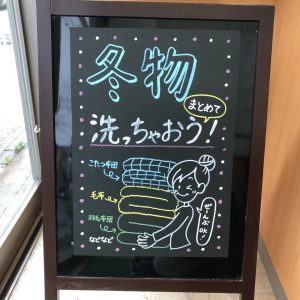 冬物
まとめて
洗っちゃおう!
こたつ布団
毛布
羽毛布団
などなど
ぜーんぶOK!